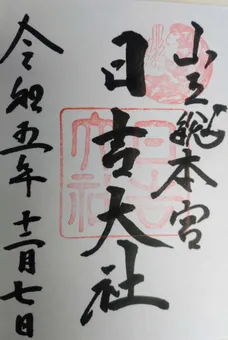 山王総本宮
日吉大社
令和五年十二月七日